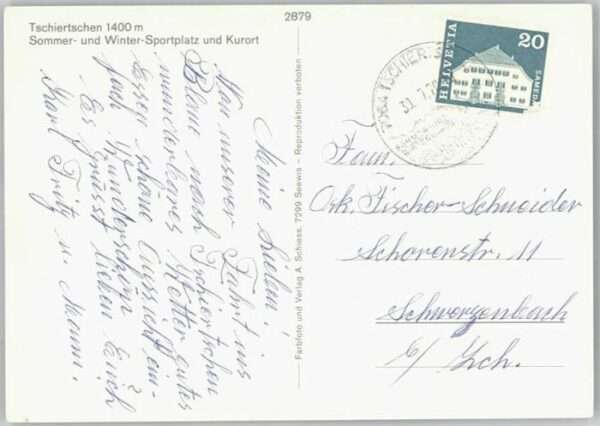 Tschiertschen 1400 m
Sommer- und Winter-Sportplatz und Kurort
2879
Meine Lieben!
Von unserer Fahrt ins
Blaue nach Tschiertschen
wunderbares Wetter gutes
Essen schöne Aussicht ein-
fach Wunderschön
Es grüsst lieben Euch
Fritz u.
Farbfoto und Verlag A. Schiess, 7299 Seewis — Reproduktion verboten
HELVETIA
20
SAMEDAN
TSCHIERTSCHEN
Fam.
Osk. Fischer-Schneider
Schorenstr. 11
Schwerzenbach
b/ Zch.